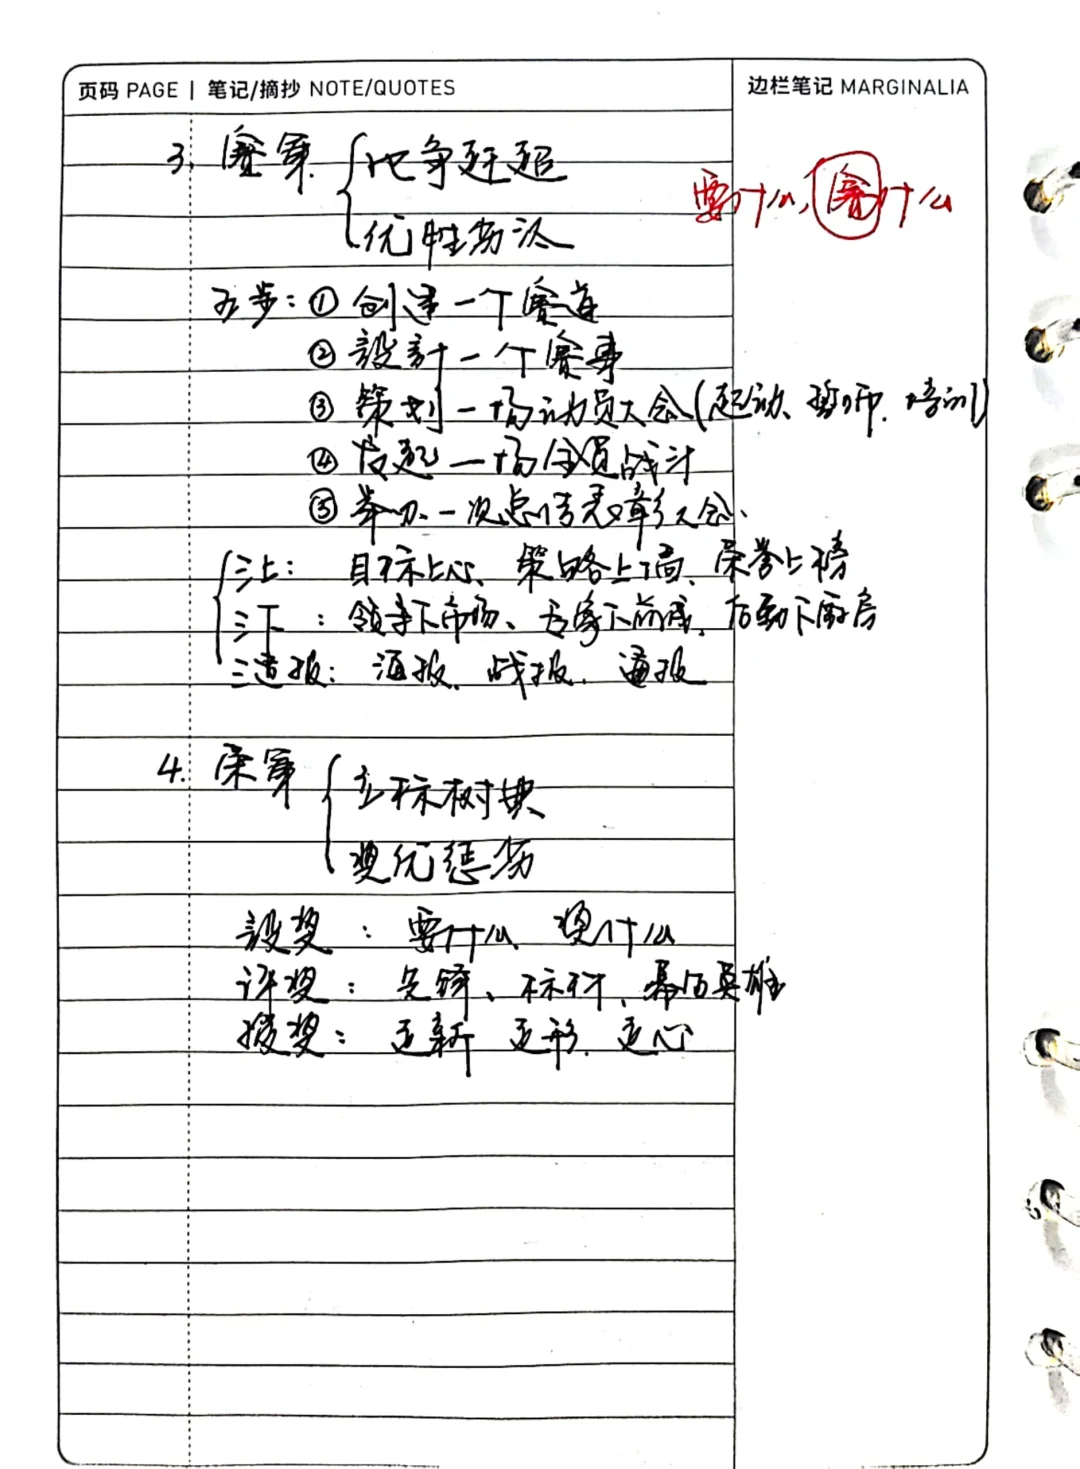 页码 PAGE | 笔记/摘抄 NOTE/QUOTES
边栏笔记 MARGINALIA
3. 赛第 比争赶超
优胜劣汰
要什么,赛什么
五步:① 创建一个赛道
② 設計一个赛事
③ 策划一场动员大会(起动、誓师、培训)
④ 发起一场全员战斗
⑤ 举办一次总结表彰大会、
三上: 目标上心、策略上墙、荣誉上榜
三下: 领导下市场、专家下前线、后勤下厨房
三道报: 海报、战报、通报
4. 荣第 立标树典
奖优惩劣
設奖: 要什么、奖什么
评奖: 先锋、标杆、幕后英雄
授奖: 走新 走形、走心